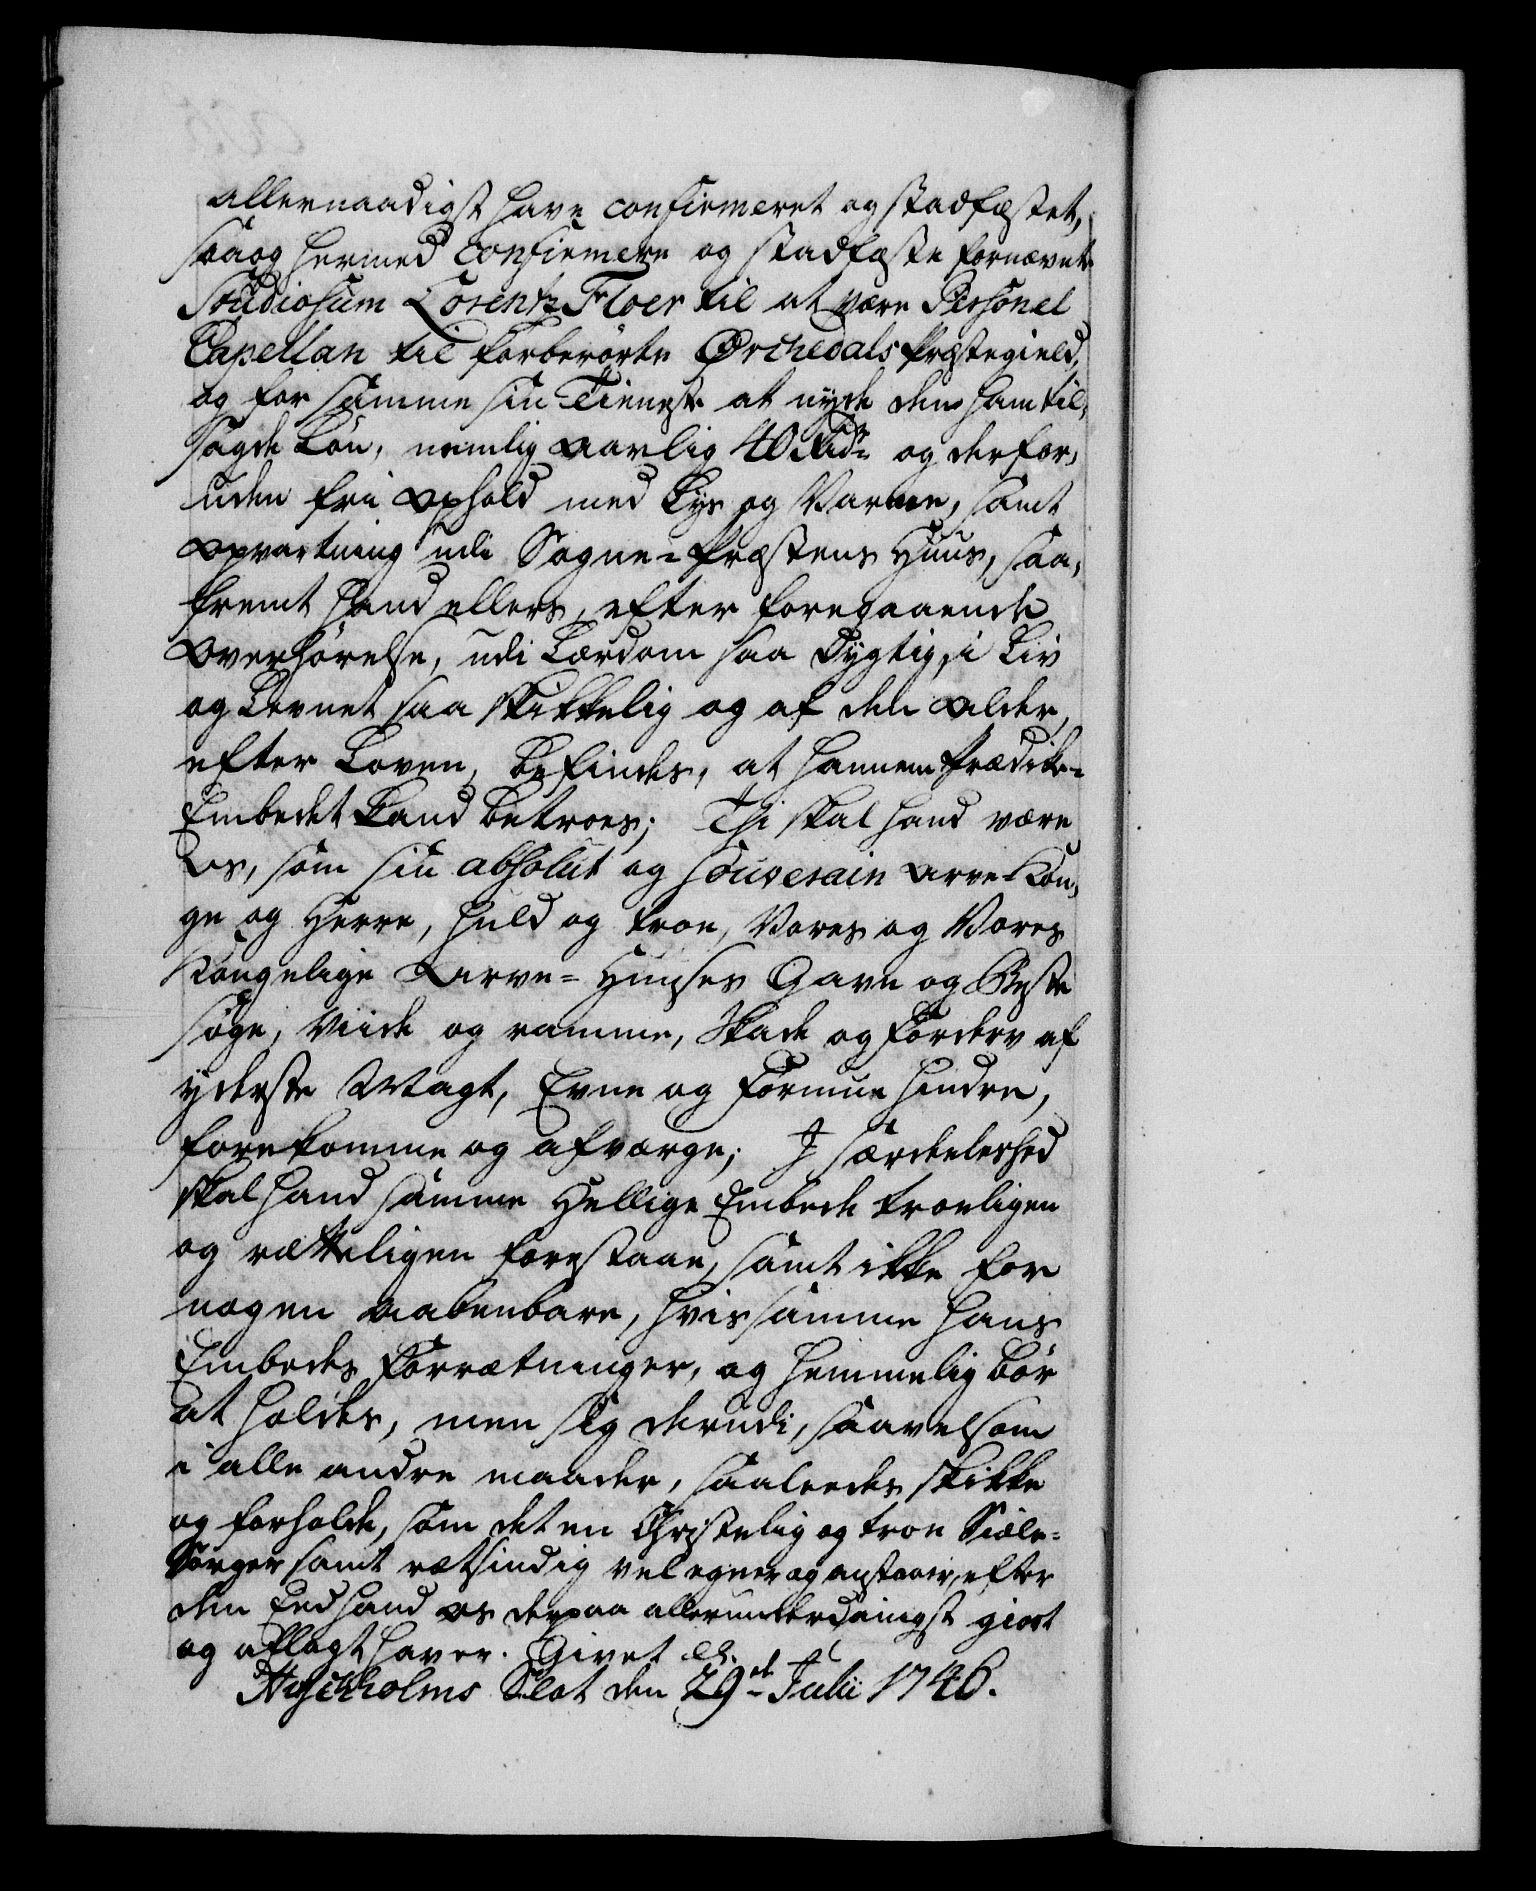 allernaadigst have confirmeret og stadfæstet,
saa og hermed confirmere og stadfæste fornævnte
Studiosum Lorentz Floer til at være Personel
Capellan til forberørte Ørchedals Præstegield,
og for samme sin Tieneste at nyde den ham til,
sagde Løn, nemlig aarlig 40 Rdr og derfor,
uden fri Ophold med Lys og Varme, samt
Opvartning udi Sogne-Præstens Huus, saa,
fremt hand ellers, efter foregaaende
Overhørelse, udi Lærdom saa Dygtig, i Liv
og Levnet saa skikkelig og af den Alder,
efter Loven, befindes, at hannem Prædike-
Embedet kand betroes; Thi skal hand være
Os, som sin absolut og souverain Arve-Kon,
ge og Herre, huld og troe, Vores og Vores
Kongelige Arve-Huuses Gavn og Beste
søge, viide og ramme, Skade og Forderv af
yderste Magt, Evne og Formue hindre,
forekomme og afværge; I særdeleshed
skal hand samme Hellige Embede troeligen
og rætteligen forestaae, samt ikke for
nogen aabenbare, hvis samme hans
Embedes Forrætninger, og hemmelig bør
at holdes, men sig derudi, saavelsom
i alle andre maader, saaleedes skikke
og forholde, som det en Christelig og troe Siæle-
Sørger samt rætsindig vel egner og anstaaer, efter
den Eed hand Os derpaa allerunderdanigst giort
og aflagt haver. Givet etc.
Hirschholms Slot den 29de Julii 1746.